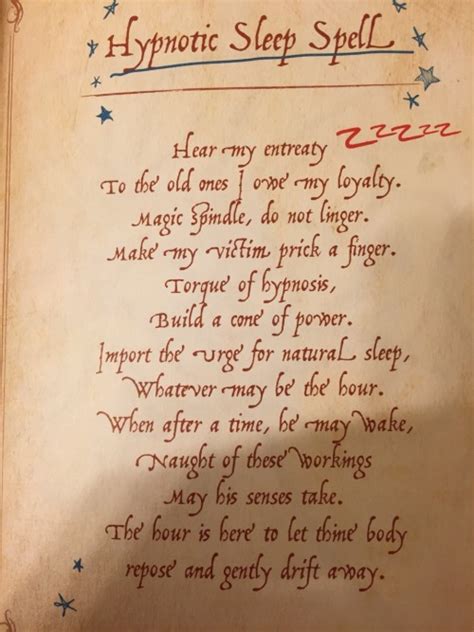 Hypnotic Sleep Spell
zzzzz
Hear my entreaty
To the old ones I owe my loyalty.
Magic Spindle, do not linger.
Make my victim prick a finger.
Torque of hypnosis,
Build a cone of power.
Import the urge for natural sleep,
Whatever may be the hour.
When after a time, he may wake,
Naught of these workings
May his senses take.
The hour is here to let thine body
repose and gently drift away.